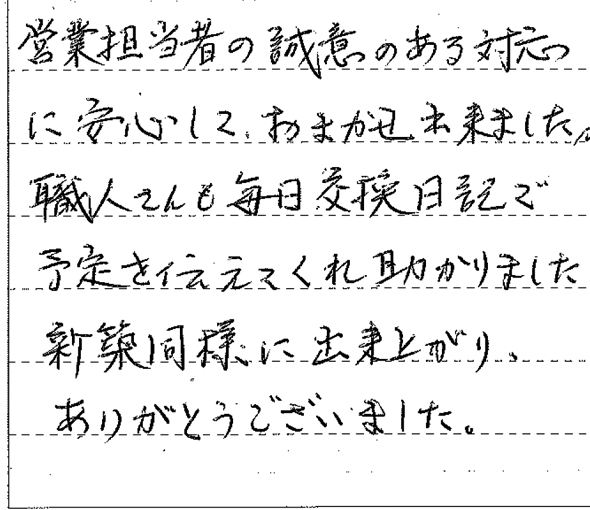 営業担当者の誠意のある対応
に安心して、おまかせ出来ました。
職人さんも毎日交換日記で
予定を伝えてくれ助かりました
新築同様に出来上がり、
ありがとうございました。